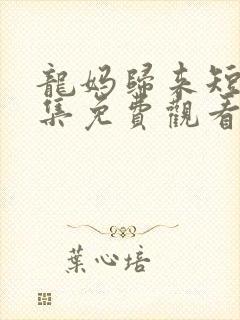 龍媽歸來短
集免費觀看
葉心培